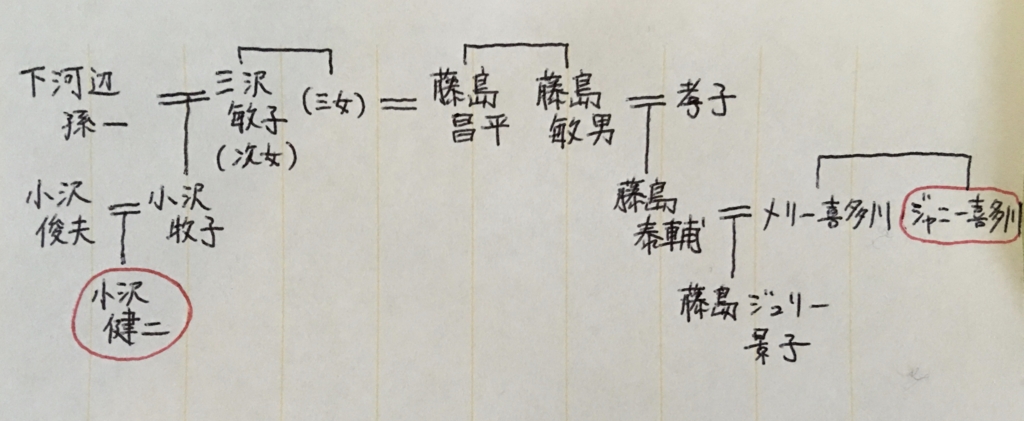 下河辺
孫一
三沢
敏子
(次女)
(三女)
藤島
昌平
藤島
敏男
孝子
小沢
俊夫
小沢
牧子
藤島
泰輔
メリー喜多川
ジャニー喜多川
小沢
健二
藤島ジュリー
景子